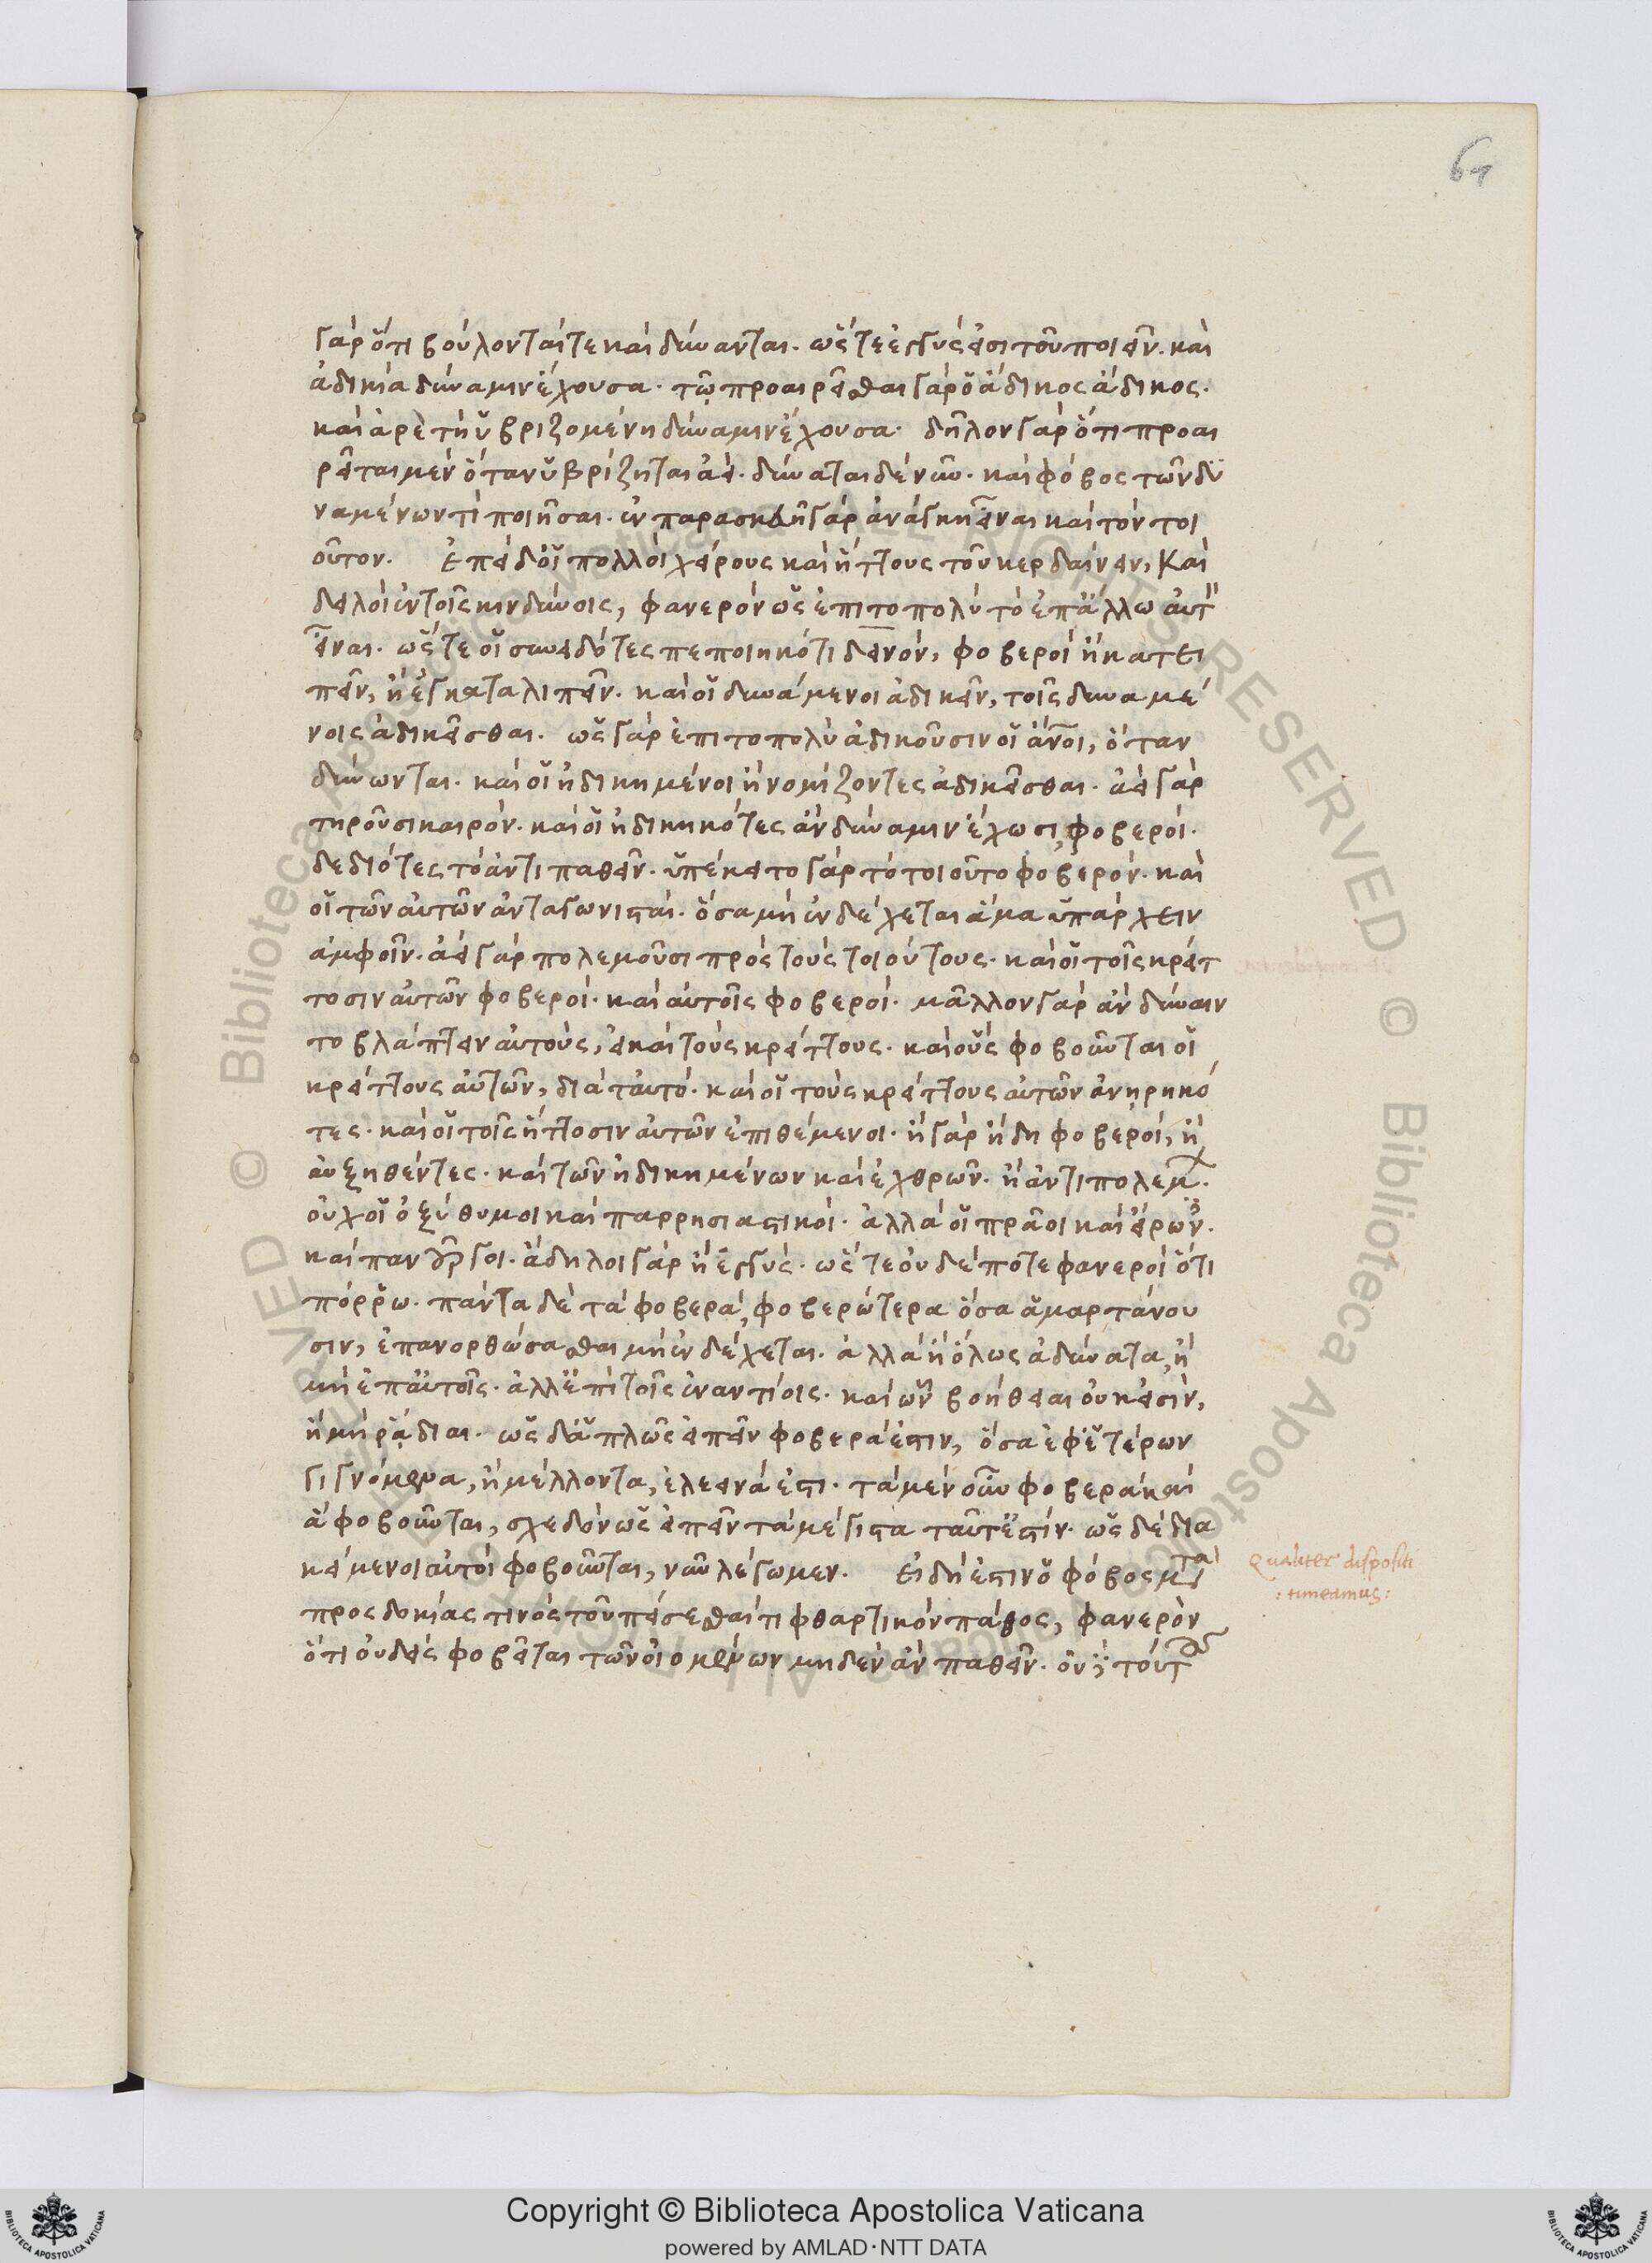 64
γὰρ ὅτι βούλονταί τε καὶ δύνανται. ὥς τε ἐγγύς εἰσι τοῦ ποιεῖν. καὶ
ἀδικία δύναμιν ἔχουσα. τῷ προαιρεῖσθαι γὰρ ὁ ἄδικος ἄδικος.
καὶ ἀρετὴ ὑβριζομένη δύναμιν ἔχουσα. δῆλον γὰρ ὅτι προαι
ρεῖται μὲν ὅταν ὑβρίζηται ἀεί. δύναται δὲ νῦν. καὶ φόβος τῶν δυ
ναμένων τὶ ποιῆσαι. ἐν παρασκευῆ γὰρ ἀνάγκη εἶναι καὶ τὸν τοι
οῦτον. Ἐπεὶ δ' οἱ πολλοὶ χείρους καὶ ἥττους τοῦ κερδαίνειν, Καὶ
δειλοὶ ἐν τοῖς κινδύνοις, φανερὸν ὡς ἐπιτοπολὺ τὸ ἐπ' ἄλλω αὐτ
εἶναι. ὥς τε οἱ συνειδότες πεποιηκότι δεινὸν, φοβεροὶ ἢ κατει
πεῖν, ἢ ἐγκαταλιπεῖν. καὶ οἱ δυνάμενοι ἀδικεῖν, τοῖς δυναμέ
νοις ἀδικεῖσθαι. ὡς γὰρ ἐπιτοπολὺ ἀδικοῦσιν οἱ ἄνοι, ὅταν
δύνωνται. καὶ οἱ ἠδικημένοι ἢ νομίζοντες ἀδικεῖσθαι. ἀεὶ γὰρ
τηροῦσι καιρόν. καὶ οἱ ἠδικηκότες ἂν δύναμιν ἔχωσι, φοβεροί.
δεδιότες τὸ ἀντιπαθεῖν. ὑπέκειτο γὰρ τὸ τοιοῦτο φοβερόν. καὶ
οἱ τῶν αὐτῶν ἀνταγωνισταί. ὅσα μὴ ἐνδέχεται ἅμα ὑπάρχειν
ἀμφοῖν. ἀεὶ γὰρ πολεμοῦσι πρὸς τοὺς τοιούτους. καὶ οἱ τοῖς κρείτ
τοσιν αὐτῶν φοβεροί. καὶ αὐτοῖς φοβεροί. μᾶλλον γὰρ ἂν δύναιν
το βλάπτειν αὐτοὺς, εἰ καὶ τοὺς κρείττους. καὶ οὓς φοβοῦνται οἱ
κρείττους αὐτῶν, διὰ ταὐτό. καὶ οἱ τοὺς κρείττους αὐτῶν ἀνῃρηκό
τες. καὶ οἱ τοῖς ἥττοσιν αὐτῶν ἐπιθέμενοι. ἢ γὰρ ἤδη φοβεροί, ἢ
αὐξηθέντες. καὶ τῶν ἠδικημένων καὶ ἐχθρῶν. ἢ ἀντιπολεμ.
οὐχ οἱ ὀξύθυμοι καὶ παρρησιαστικοί. ἀλλὰ οἱ πρᾶοι καὶ εἴρων.
καὶ πανοῦργοι. ἄδηλοι γὰρ ἢ ἐγγύς. ὥς τε οὐδέποτε φανεροὶ ὅτι
πόρρω. πάντα δὲ τὰ φοβερά, φοβερώτερα ὅσα ἁμαρτάνου
σιν, ἐπανορθώσασθαι μὴ ἐνδέχεται. ἀλλὰ ἢ ὅλως ἀδύνατα, ἢ
μὴ ἐπ' αὐτοῖς. ἀλλ' ἐπὶ τοῖς ἐναντίοις. καὶ ὧν βοήθειαι οὐκ εἰσὶν,
ἢ μὴ ῥάδιαι. ὡς δ' ἁπλῶς εἰπεῖν φοβερά ἐστιν, ὅσα ἐφ' ἑτέρων
γιγνόμενα, ἢ μέλλοντα, ἐλεεινά ἐστι. τὰ μὲν οὖν φοβερὰ καὶ
ἃ φοβοῦνται, σχεδὸν ὡς εἰπεῖν τὰ μέγιστα ταῦτ' ἐστίν. ὡς δὲ δια
κείμενοι αὐτοὶ φοβοῦνται, νῦν λέγωμεν. Εἰ δή ἐστιν ὁ φόβος μετὰ
προσδοκίας τινὸς τοῦ πείσεσθαί τι φθαρτικὸν πάθος, φανερὸν
ὅτι οὐδεὶς φοβεῖται τῶν οἰομένων μηδὲν ἂν παθεῖν.
Qualiter dispositi
: timeamus :
Copyright © Biblioteca Apostolica Vaticana
powered by AMLAD·NTT DATA